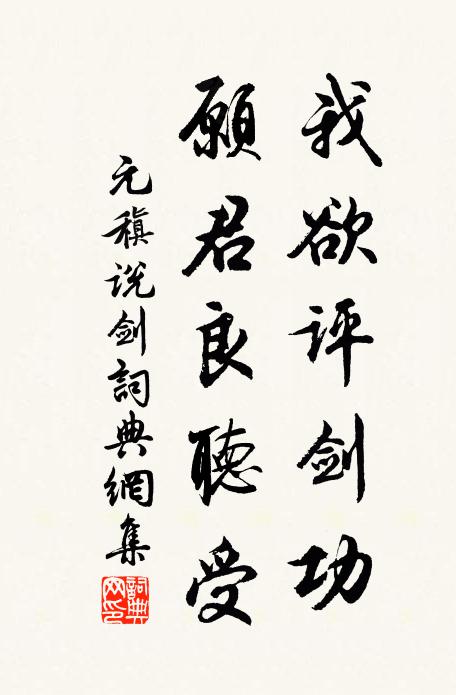 我欲评剑功
願君良聽受
元稹说剑詞典網集
詞典网印